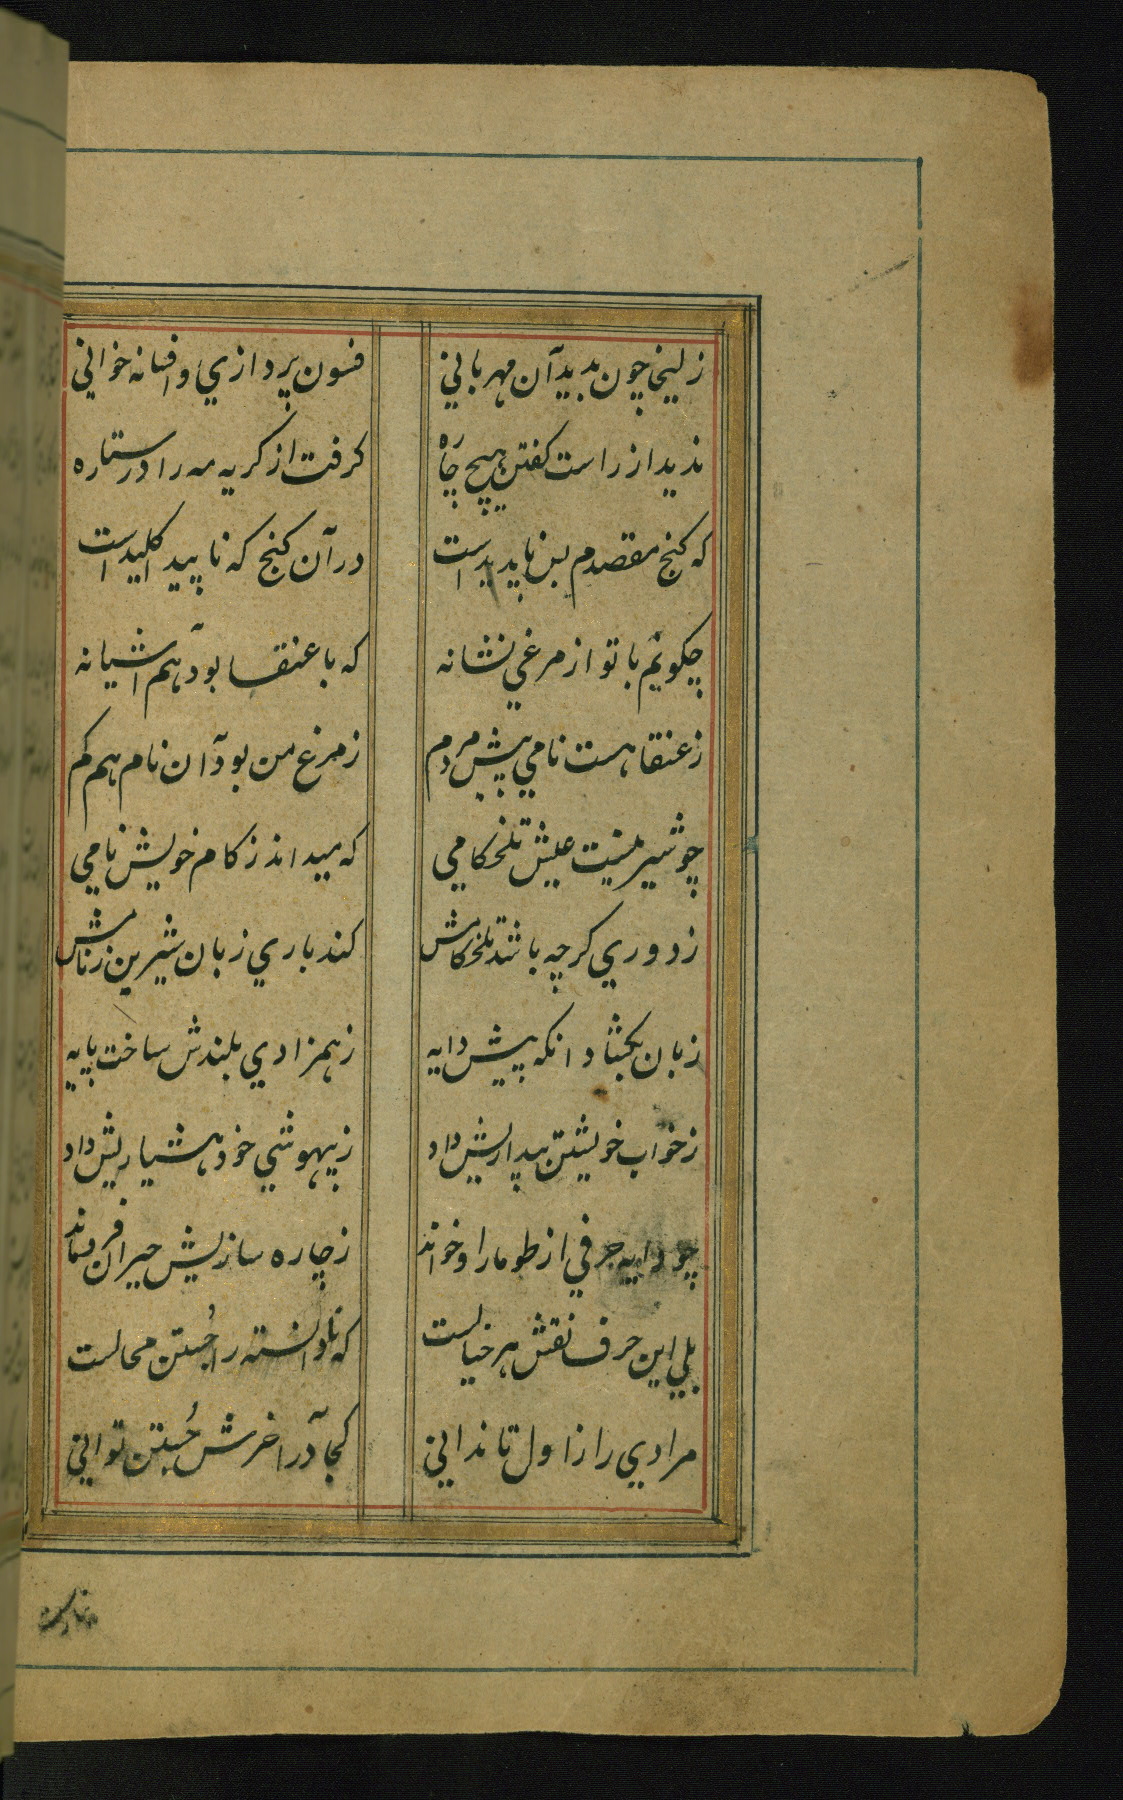 زلیخا چون بدید آن مهربانی فسون پردازی و افسانه خوانی
ندید از راست کفتن هیچ چاره کرفت از کریه مه را در ستاره
که کنج مقصدم بس ناپدیدست در آن کنج که ناپید اکلیدست
چکویم با تو از مرغی نشانه که با عنقا بود هم آشیانه
ز عنقا هست نامی پیش مردم ز مرغ من بود آن نام هم کم
چو شیرینست عیش تلخکامی که میداند ز کام خویش نامی
ز دوری کرچه باشد تلخکامش کند باری زبان شیرین ز نامش
زبان بکشاد انکه پیش دایه ز همزادی بلندش ساخت پایه
ز خواب خویشتن بیداریش داد ز بیهوشی خود هشیاریش داد
چو دایه حرفی از طومار او خواند ز چاره سازیش حیران فروماند
بلی این حرف نقش هر خیالست که نادانسته را جُستن محالست
مرادی را ز اول تا ندانی کجا در آخرش جُستن توانی